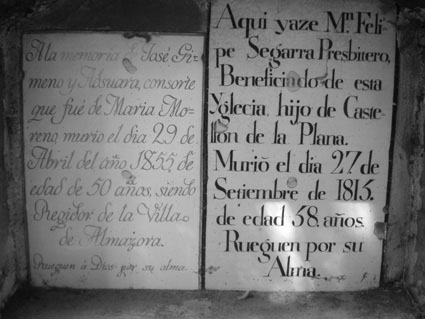 A la memoria de José Gi-
meno y Adsuara, consorte
que fué de Maria Mo-
reno, murio el dia 29 de
Abril del año 1855, de
edad de 50 años, siendo
Regidor de la Villa
de Almazora.
Rueguen á Dios por su alma.
Aqui yaze Mn. Feli-
pe Segarra Presbitero,
Beneficindo de esta
Yglecia, hijo de Caste-
llon de la Plana.
Murió el dia 27 de
Setiembre de 1815.
de edad 58 años.
Rueguen por su
Alma.